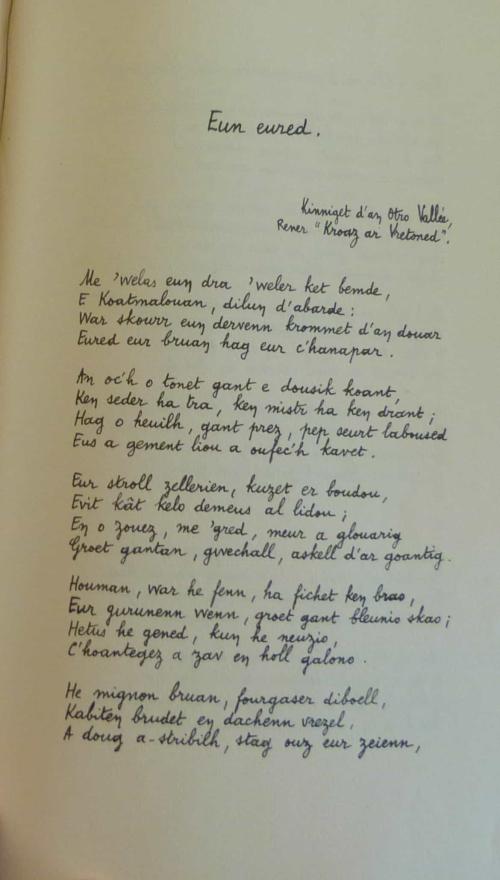 Eun eured.
Kinniget d'aŋ Otro Vallée,
Rener "Kroaz ar Vretoned".
Me 'welas euŋ dra 'weler ket bemde,
E Koatmalouan, diluŋ d'abarde :
War skourr euŋ dervenn krommet d'aŋ douar
Eured eur bruaŋ hag eur c'hanapar.
Aŋ oc'h o tonet gant e dousik koant,
Keŋ seder ha tra, keŋ mistr ha keŋ drant ;
Hag o heuilh, gant prez, pep seurt laboused
Eus a gement liou a oufec'h kavet.
Eur stroll zellerien, kuzet er boudou,
Evit kât kelo demeus al lidou ;
Eŋ o zouez, me 'gred, meur a glouarig
Groet gantaŋ, gwechall, askell d'ar goantig.
Houmaŋ, war he fenn, ha fichet keŋ brao,
Eur gurunenn wenn, groet gant bleunio skao ;
Hetus he gened, kuŋ he neuzio,
C'hoantegez a zav eŋ holl galono.
He mignon bruaŋ, fourgaser diboell,
Kabiteŋ brudet eŋ dachenn vrezel,
A doug a-stribilh, stag ouz eur zeienn,